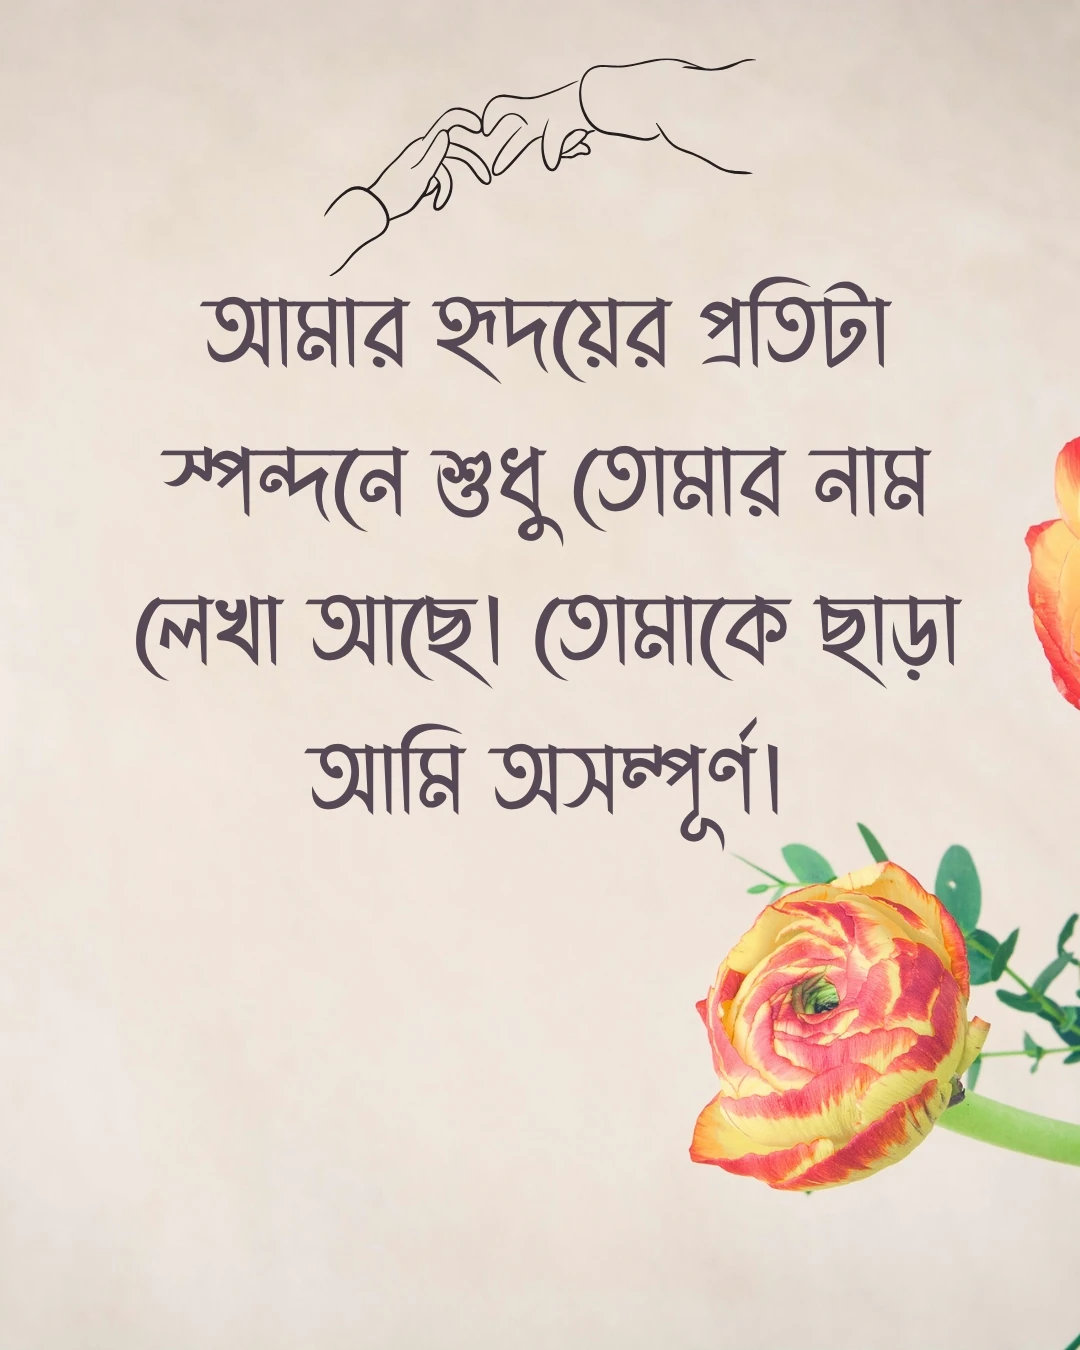 আমার হৃদয়ের প্রতিটা
স্পন্দনে শুধু তোমার নাম
লেখা আছে। তোমাকে ছাড়া
আমি অসম্পূর্ণ।